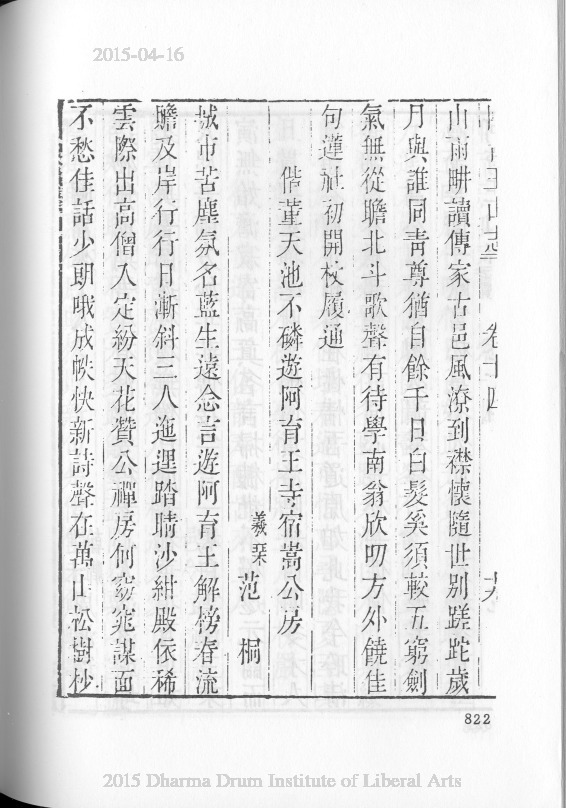 2015-04-16
山雨畊讀傳家古邑風潦到襟懷隨世別蹉跎歲
月與誰同青尊猶自餘千日白髮奚須較五窮劍
氣無從瞻北斗歌聲有待學南翁欣叨方外饒佳
句蓮社初開杖履通
偕董天池不磷遊阿育王寺宿嵩公房
羲琹 范桐
城市苦塵氛名藍生遠念言遊阿育王解榜春流
贍及岸行行日漸斜三人迤逕踏晴沙紺殿依稀
雲際出高僧入定紛天花贊公禪房何窈窕謀面
不愁佳話少朗哦成帙快新詩聲在萬山松樹杪
王山志 卷十四
822
2015 Dharma Drum Institute of Liberal Arts